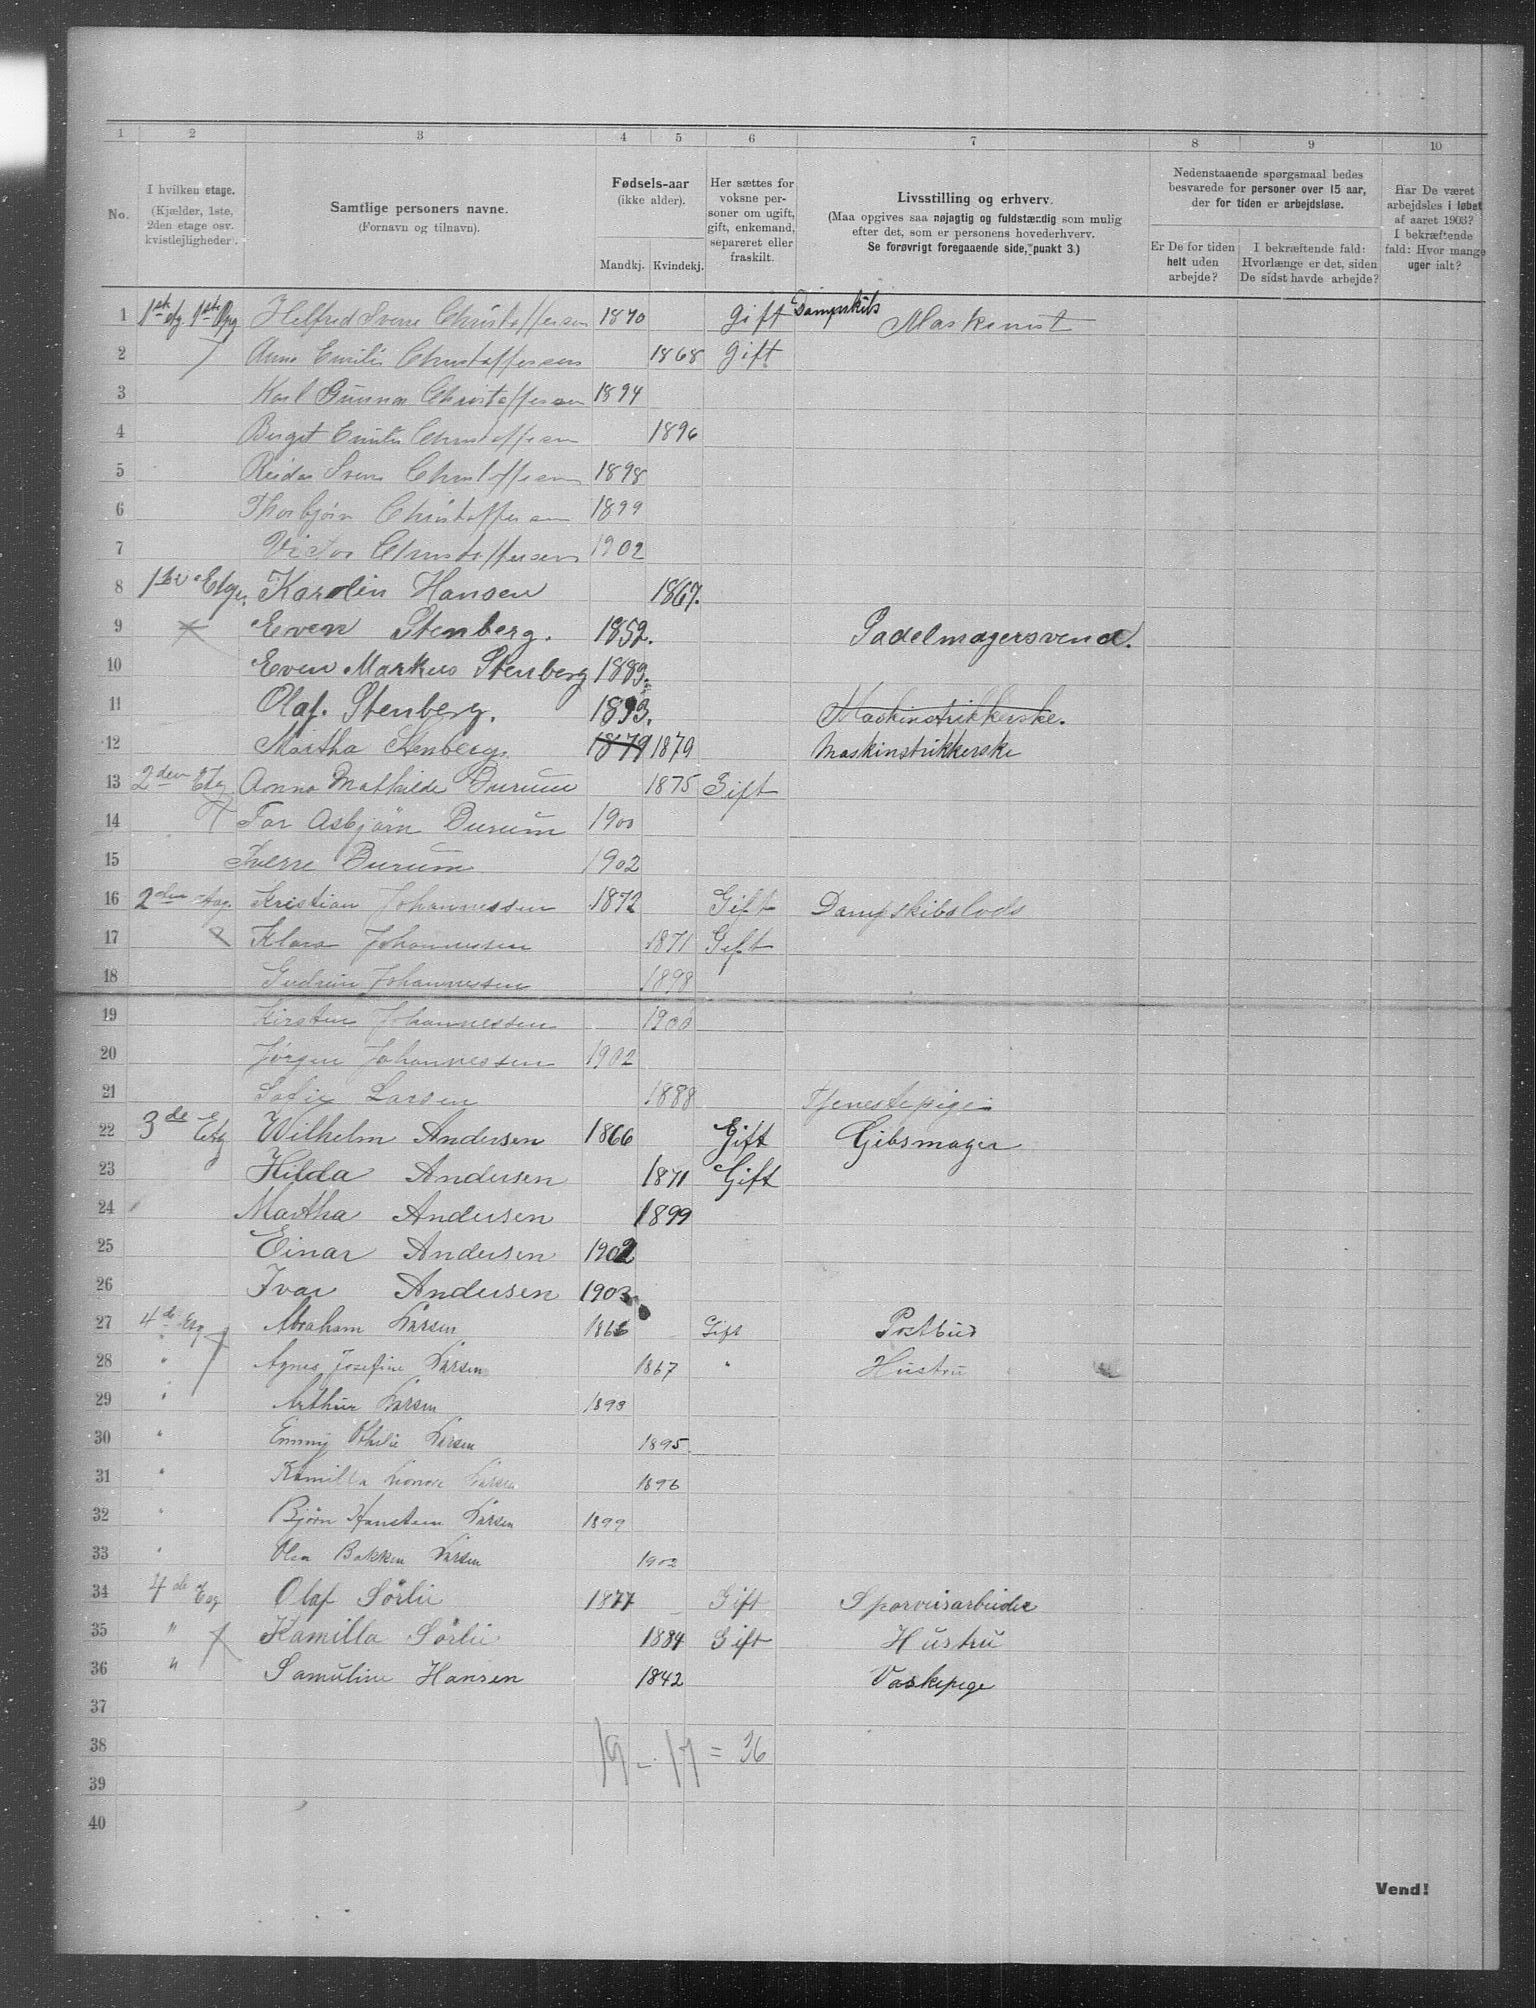 1 2 3 4 5 6 7 8 9 10
No.
I hvilken etage.
(Kjælder, 1ste, 2den etage osv. kvistlejligheder).
Samtlige personers navne.
(Fornavn og tilnavn).
Fødsels-aar
(ikke alder).
Mandkj. Kvindekj.
Her sættes for voksne personer om ugift, gift, enkemand, separeret eller fraskilt.
Livsstilling og erhverv.
(Maa opgives saa nøjagtig og fuldstændig som mulig efter det, som er personens hovederhverv.
Se forøvrigt foregaaende side, punkt 3.)
Nedenstaaende spørgsmaal bedes besvarede for personer over 15 aar, der for tiden er arbejdsløse.
Er De for tiden helt uden arbejde?
I bekræftende fald: Hvorlænge er det, siden De sidst havde arbejde?
Har De været arbejdsløs i løbet af aaret 1903? I bekræftende fald: Hvor mange uger ialt?
1 1ste etg 1ste Opg Helfred Sverre Christoffersen 1870 gift Dampskibs Maskinist
2 Anna Emilie Christoffersen 1868 gift
3 Karl Gunnar Christoffersen 1894
4 Birgit Emilie Christoffersen 1896
5 Reidar Sverre Christoffersen 1898
6 Thorbjørn Christoffersen 1899
7 Victor Christoffersen 1902
8 1ste Etge. Karolin Hansen 1867.
9 Even Stenberg. 1852. Sadelmagersvend.
10 Even Markus Stenberg 1883.
11 Olaf. Stenberg. 1893. Maskinstrikkerske.
12 Martha Stenberg. 1879 1879 Maskinstrikkerske
13 2den Etg Anna Mathilde Burum 1875 Gift
14 Tor Asbjørn Burum 1900
15 Sverre Burum 1902
16 2den etag. Kristian Johannessen 1872 Gift Dampskibslods
17 Klara Johannessen 1871 Gift
18 Gudrun Johannessen 1898
19 Kirsten Johannessen 1900
20 Jørgen Johannessen 1902
21 Sofie Larsen 1888 Tjenestepige
22 3de Etg Wilhelm Andersen 1866 Gift Gibsmager
23 Hilda Andersen 1871 Gift
24 Martha Andersen 1899
25 Einar Andersen 1902
26 Ivar Andersen 1903
27 4de Etg Abraham Larsen 1866 Gift Postbud
28 " Agnes Josefine Larsen 1867 " Hustru
29 " Arthur Larsen 1893
30 " Emmy Othilie Larsen 1895
31 " Kamilla Larsen 1896
32 " Bjørn Hansteen Larsen 1899
33 " Olea Bakken Larsen 1902
34 4de Etg Olaf Sørlie 1877 Gift Sporveisarbeider
35 " Kamilla Sørlie 1884 Gift Hustru
36 " Samuline Hansen 1842 Vaskepige
37
38 19 - 17 = 36
39
40
Vend!